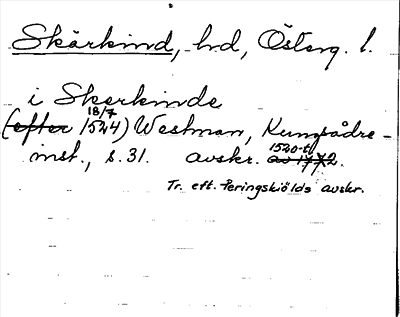 Skärkind, hd, Österg. l.
i Skerkinde
18/7
(efter 1524) Westman, Kungsådre-
inst., s. 31. avskr. av 1772.
1520-t.
Tr. eft. Peringskiölds avskr.